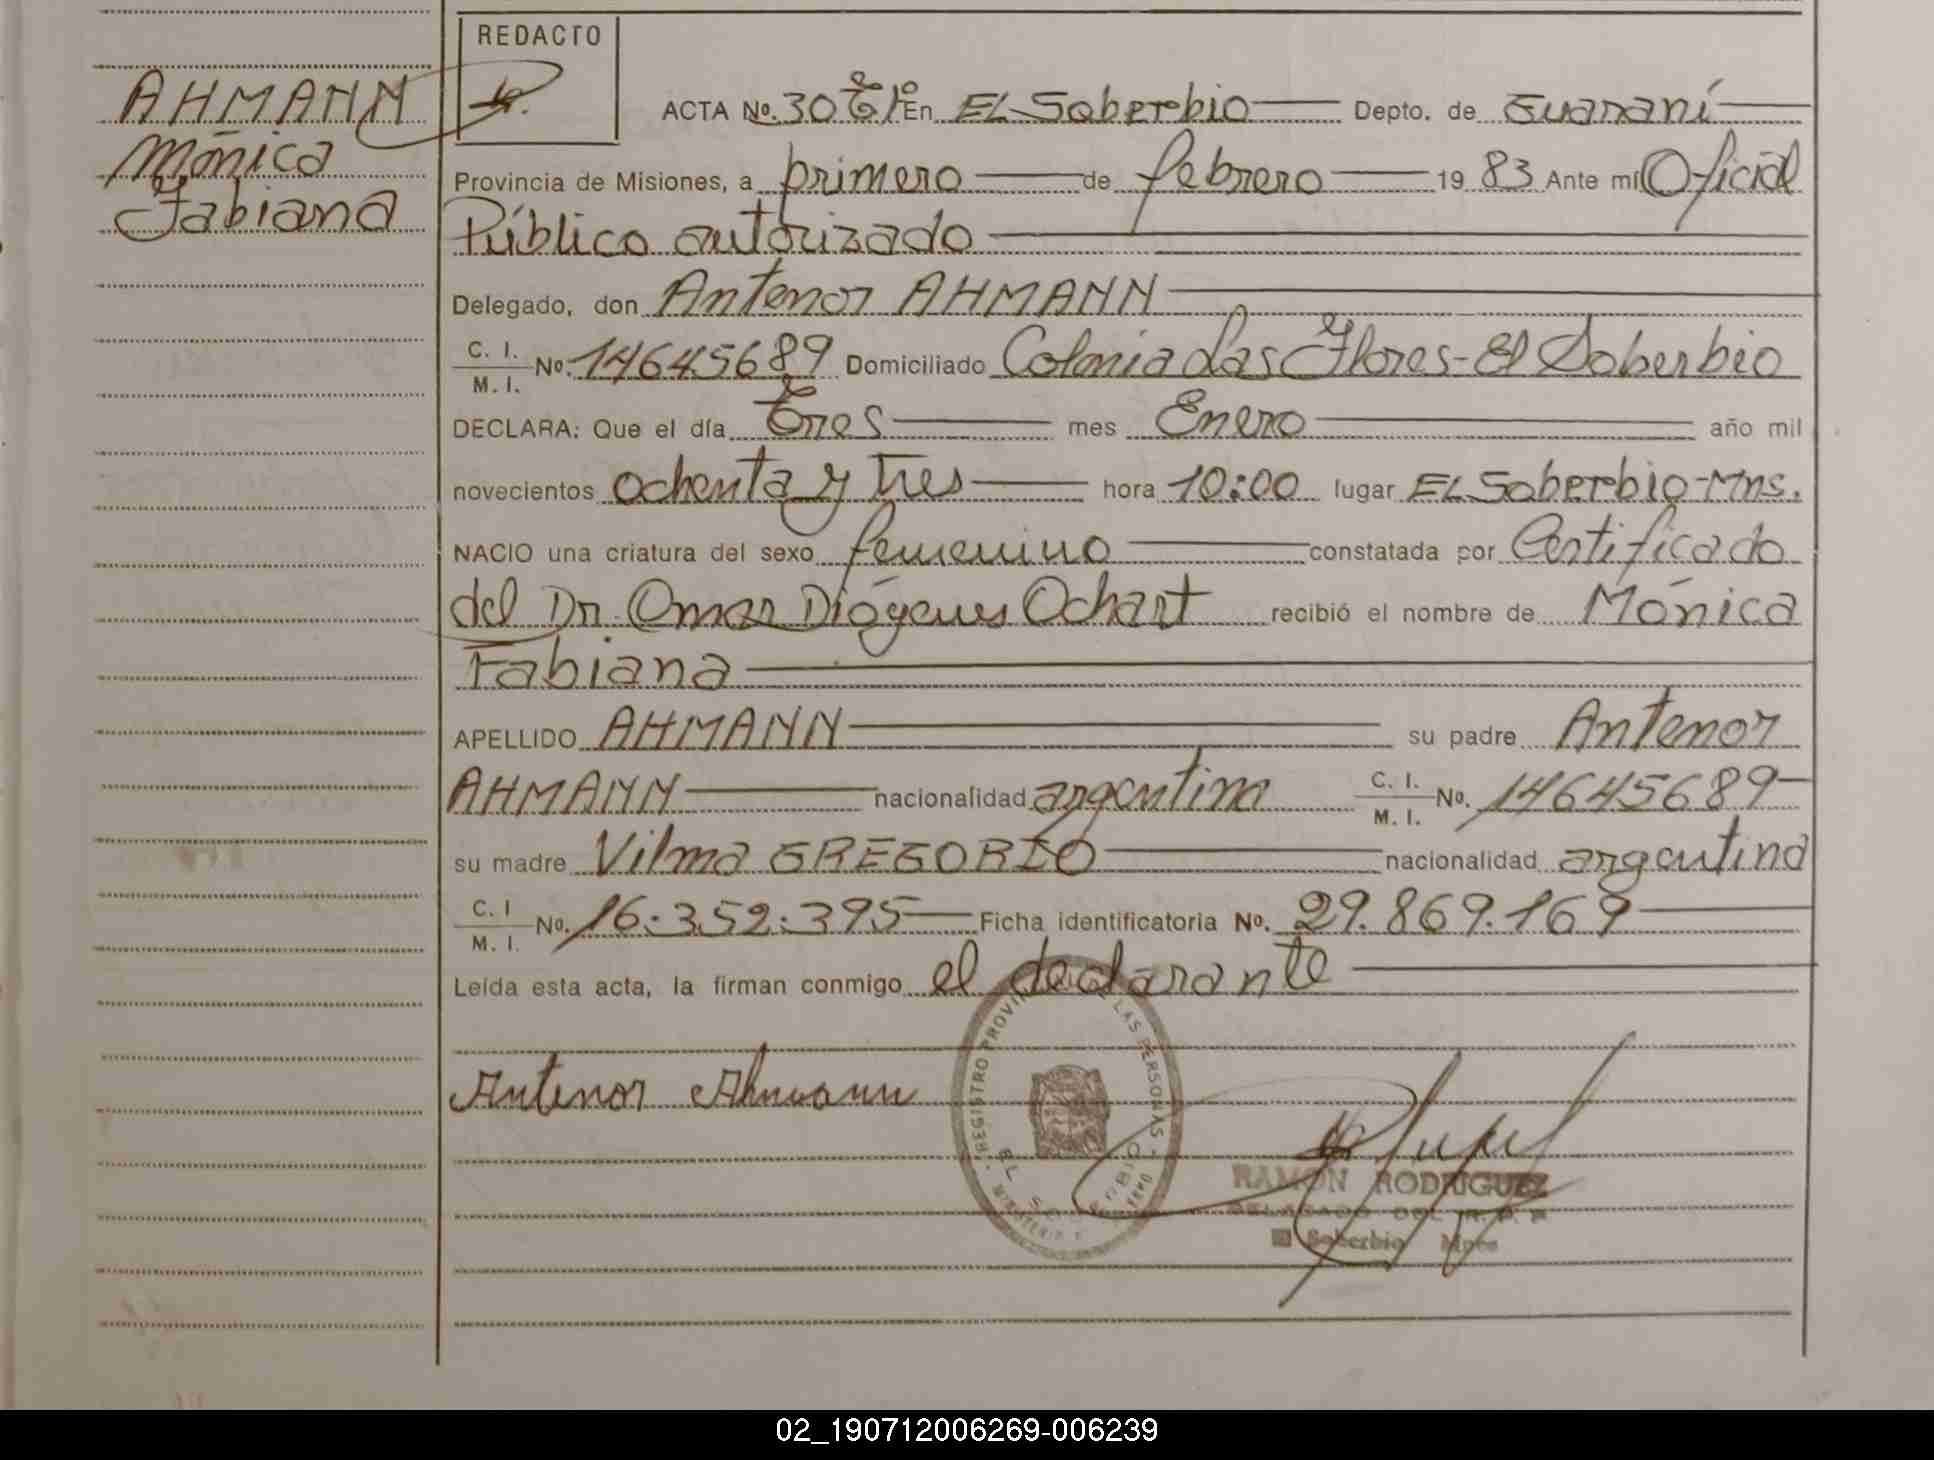 REDACTO
AHMANN
Mónica
Fabiana
ACTA No. 30 Tº 1º En EL Soberbio Depto. de Guaraní
Provincia de Misiones, a primero de febrero 19 83 Ante mí Oficial
Público autorizado
Delegado, don Antenor AHMANN
C. I. M. I. No. 14645689 Domiciliado Colonia Las Flores - El Soberbio
DECLARA: Que el día Tres mes Enero año mil
novecientos ochenta y tres hora 10:00 lugar EL Soberbio-Mns.
NACIO una criatura del sexo femenino constatada por Certificado
del Dr. Omar Diógenes Ochart recibió el nombre de Mónica
Fabiana
APELLIDO AHMANN su padre Antenor
AHMANN nacionalidad argentina C. I. M. I. No. 14645689
su madre Vilma GREGORIO nacionalidad argentina
C. I M. I. No. 16.352.395 Ficha identificatoria No. 29.869.169
Leída esta acta, la firman conmigo el declarante
Antenor Ahmann
REGISTRO PROVINCIAL DE LAS PERSONAS
EL SOBERBIO
RAMON RODRIGUEZ
DELEGADO DEL R. P. P.
El Soberbio Mnes
02_190712006269-006239